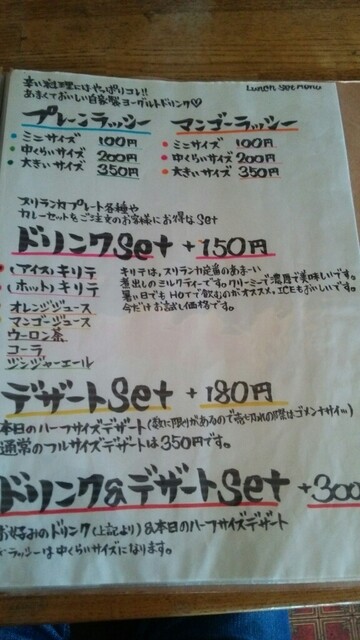 Lunch Set Menu
辛い料理にはやっぱりコレ!!
あまくておいしい自家製ヨーグルトドリンク♡
プレーンラッシー
ミニサイズ 100円
中くらいサイズ 200円
大きいサイズ 350円
マンゴーラッシー
ミニサイズ 100円
中くらいサイズ 200円
大きいサイズ 350円
スリランカプレート各種や
カレーセットをご注文のお客様にお得なset
ドリンクset +150円
(アイス)キリテ
(ホット)キリテ
オレンジジュース
マンゴージュース
ウーロン茶
コーラ
ジンジャーエール
キリテは、スリランカ定番のあまーい
煮出しのミルクティーです。クリーミーで濃厚で美味しいです。
暑い日でもHOTで飲むのがオススメ。ICEもおいしいです。
今だけお試し価格です。
デザートset +180円
本日のハーフサイズデザート(数に限りがあるので売り切れの際はゴメンナサイ...)
通常のフルサイズデザートは350円です。
ドリンク&デザートset +300
お好みのドリンク(上記より)&本日のハーフサイズデザート
ラッシーは中くらいサイズになります。